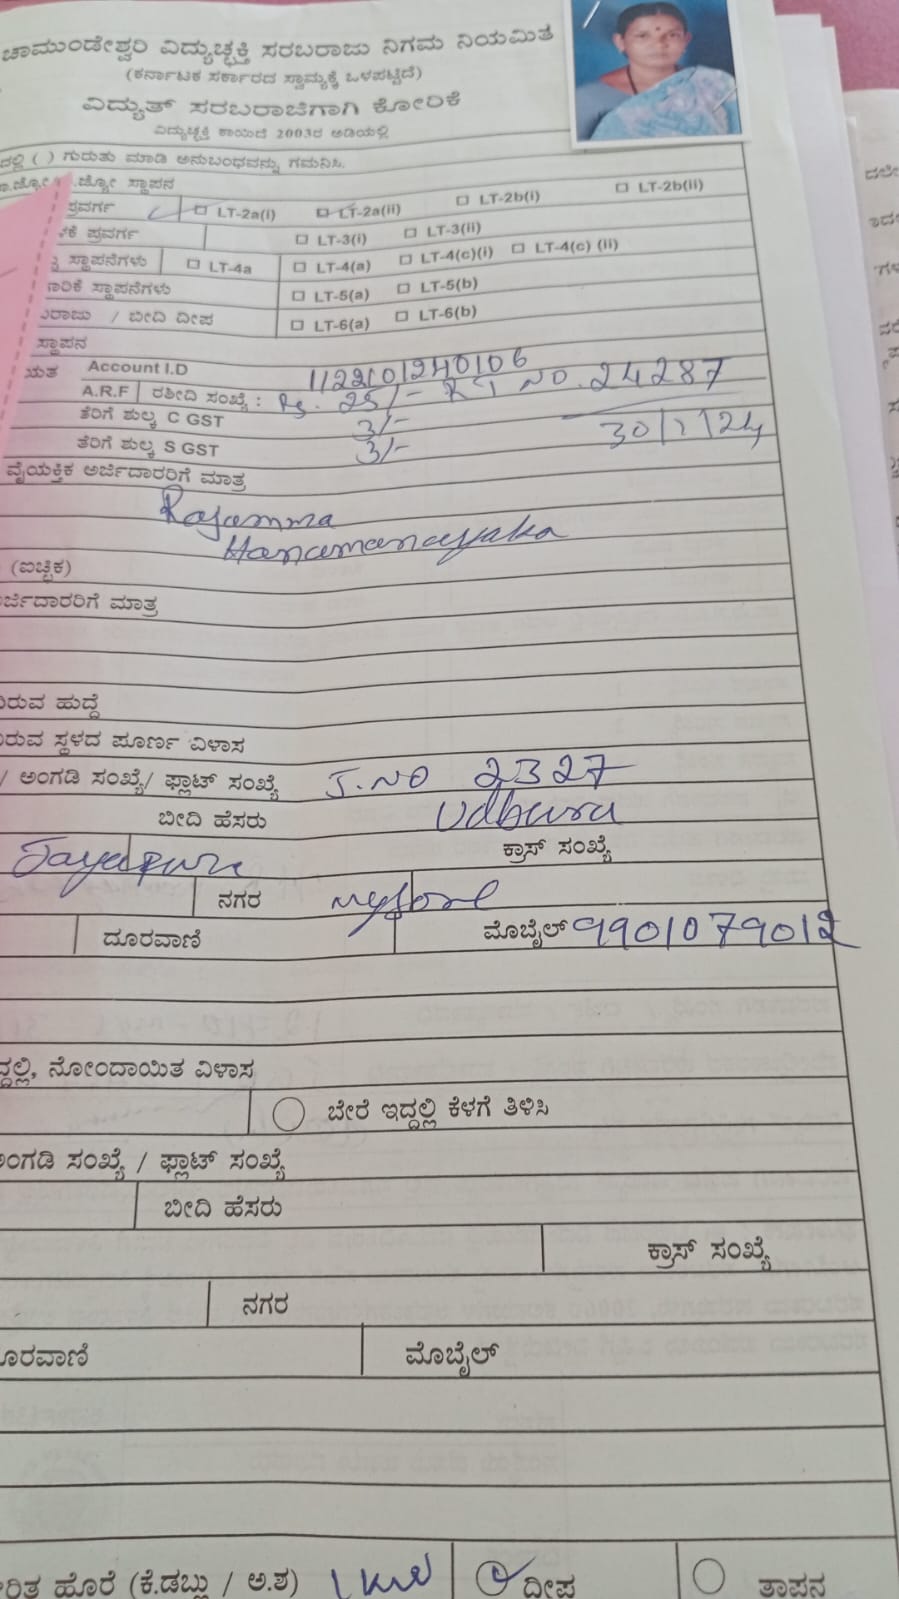 ಚಾಮುಂಡೇಶ್ವರಿ ವಿದ್ಯುಚ್ಛಕ್ತಿ ಸರಬರಾಜು ನಿಗಮ ನಿಯಮಿತ
(ಕರ್ನಾಟಕ ಸರ್ಕಾರದ ಸ್ವಾಮ್ಯಕ್ಕೆ ಒಳಪಟ್ಟಿದೆ)
ವಿದ್ಯುತ್ ಸರಬರಾಜಿಗಾಗಿ ಕೋರಿಕೆ
ವಿದ್ಯುಚ್ಛಕ್ತಿ ಕಾಯಿದೆ 2003ರ ಅಡಿಯಲ್ಲಿ
ದಲ್ಲಿ ( ) ಗುರುತು ಮಾಡಿ ಅನುಬಂಧವನ್ನು ಗಮನಿಸಿ.
ಸ್ಥಾಪನ
ಪ್ರವರ್ಗ LT-2a(i) LT-2a(ii) LT-2b(i) LT-2b(ii)
ಪ್ರವರ್ಗ LT-3(i) LT-3(ii)
ಸ್ಥಾಪನೆಗಳು LT-4a LT-4(a) LT-4(c)(i) LT-4(c) (ii)
ಸ್ಥಾಪನೆಗಳು LT-5(a) LT-5(b)
/ ಬೀದಿ ದೀಪ LT-6(a) LT-6(b)
ಸ್ಥಾಪನ
Account I.D 1122101240106
A.R.F ರಶೀದಿ ಸಂಖ್ಯೆ : Rs. 25/- RT NO. 24287
ತೆರಿಗೆ ಶುಲ್ಕ C GST 3/-
ತೆರಿಗೆ ಶುಲ್ಕ S GST 3/-
ವೈಯಕ್ತಿಕ ಅರ್ಜಿದಾರರಿಗೆ ಮಾತ್ರ
Rajamma
Hanamanayaka
(ಐಚ್ಛಿಕ)
ಅರ್ಜಿದಾರರಿಗೆ ಮಾತ್ರ
ಹುದ್ದೆ
ಸ್ಥಳದ ಪೂರ್ಣ ವಿಳಾಸ
/ ಅಂಗಡಿ ಸಂಖ್ಯೆ/ ಫ್ಲಾಟ್ ಸಂಖ್ಯೆ J.NO 2327
ಬೀದಿ ಹೆಸರು Udbura
Jayapura ಕ್ರಾಸ್ ಸಂಖ್ಯೆ
ನಗರ mysore
ದೂರವಾಣಿ ಮೊಬೈಲ್ 9901079012
ದ್ದಲ್ಲಿ, ನೋಂದಾಯಿತ ವಿಳಾಸ
ಬೇರೆ ಇದ್ದಲ್ಲಿ ಕೆಳಗೆ ತಿಳಿಸಿ
ಅಂಗಡಿ ಸಂಖ್ಯೆ / ಫ್ಲಾಟ್ ಸಂಖ್ಯೆ
ಬೀದಿ ಹೆಸರು
ಕ್ರಾಸ್ ಸಂಖ್ಯೆ
ನಗರ
ದೂರವಾಣಿ ಮೊಬೈಲ್
ಹೊರೆ (ಕೆ.ಡಬ್ಲು / ಅ.ಶ) 1 KW ದೀಪ ತಾಪನ